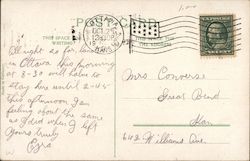 1.00
POST CARD
THIS SPACE
WRITING
All right so far landed
in Ottawa this morning
at 8-30 will have to
stay here until 2-45
this afternoon I am
feeling about the same
as I did when I left
Yours truly
Ezra
OCT 25
KANS
Mrs Converse
Great Bend
Kan
6102 Williams Ave